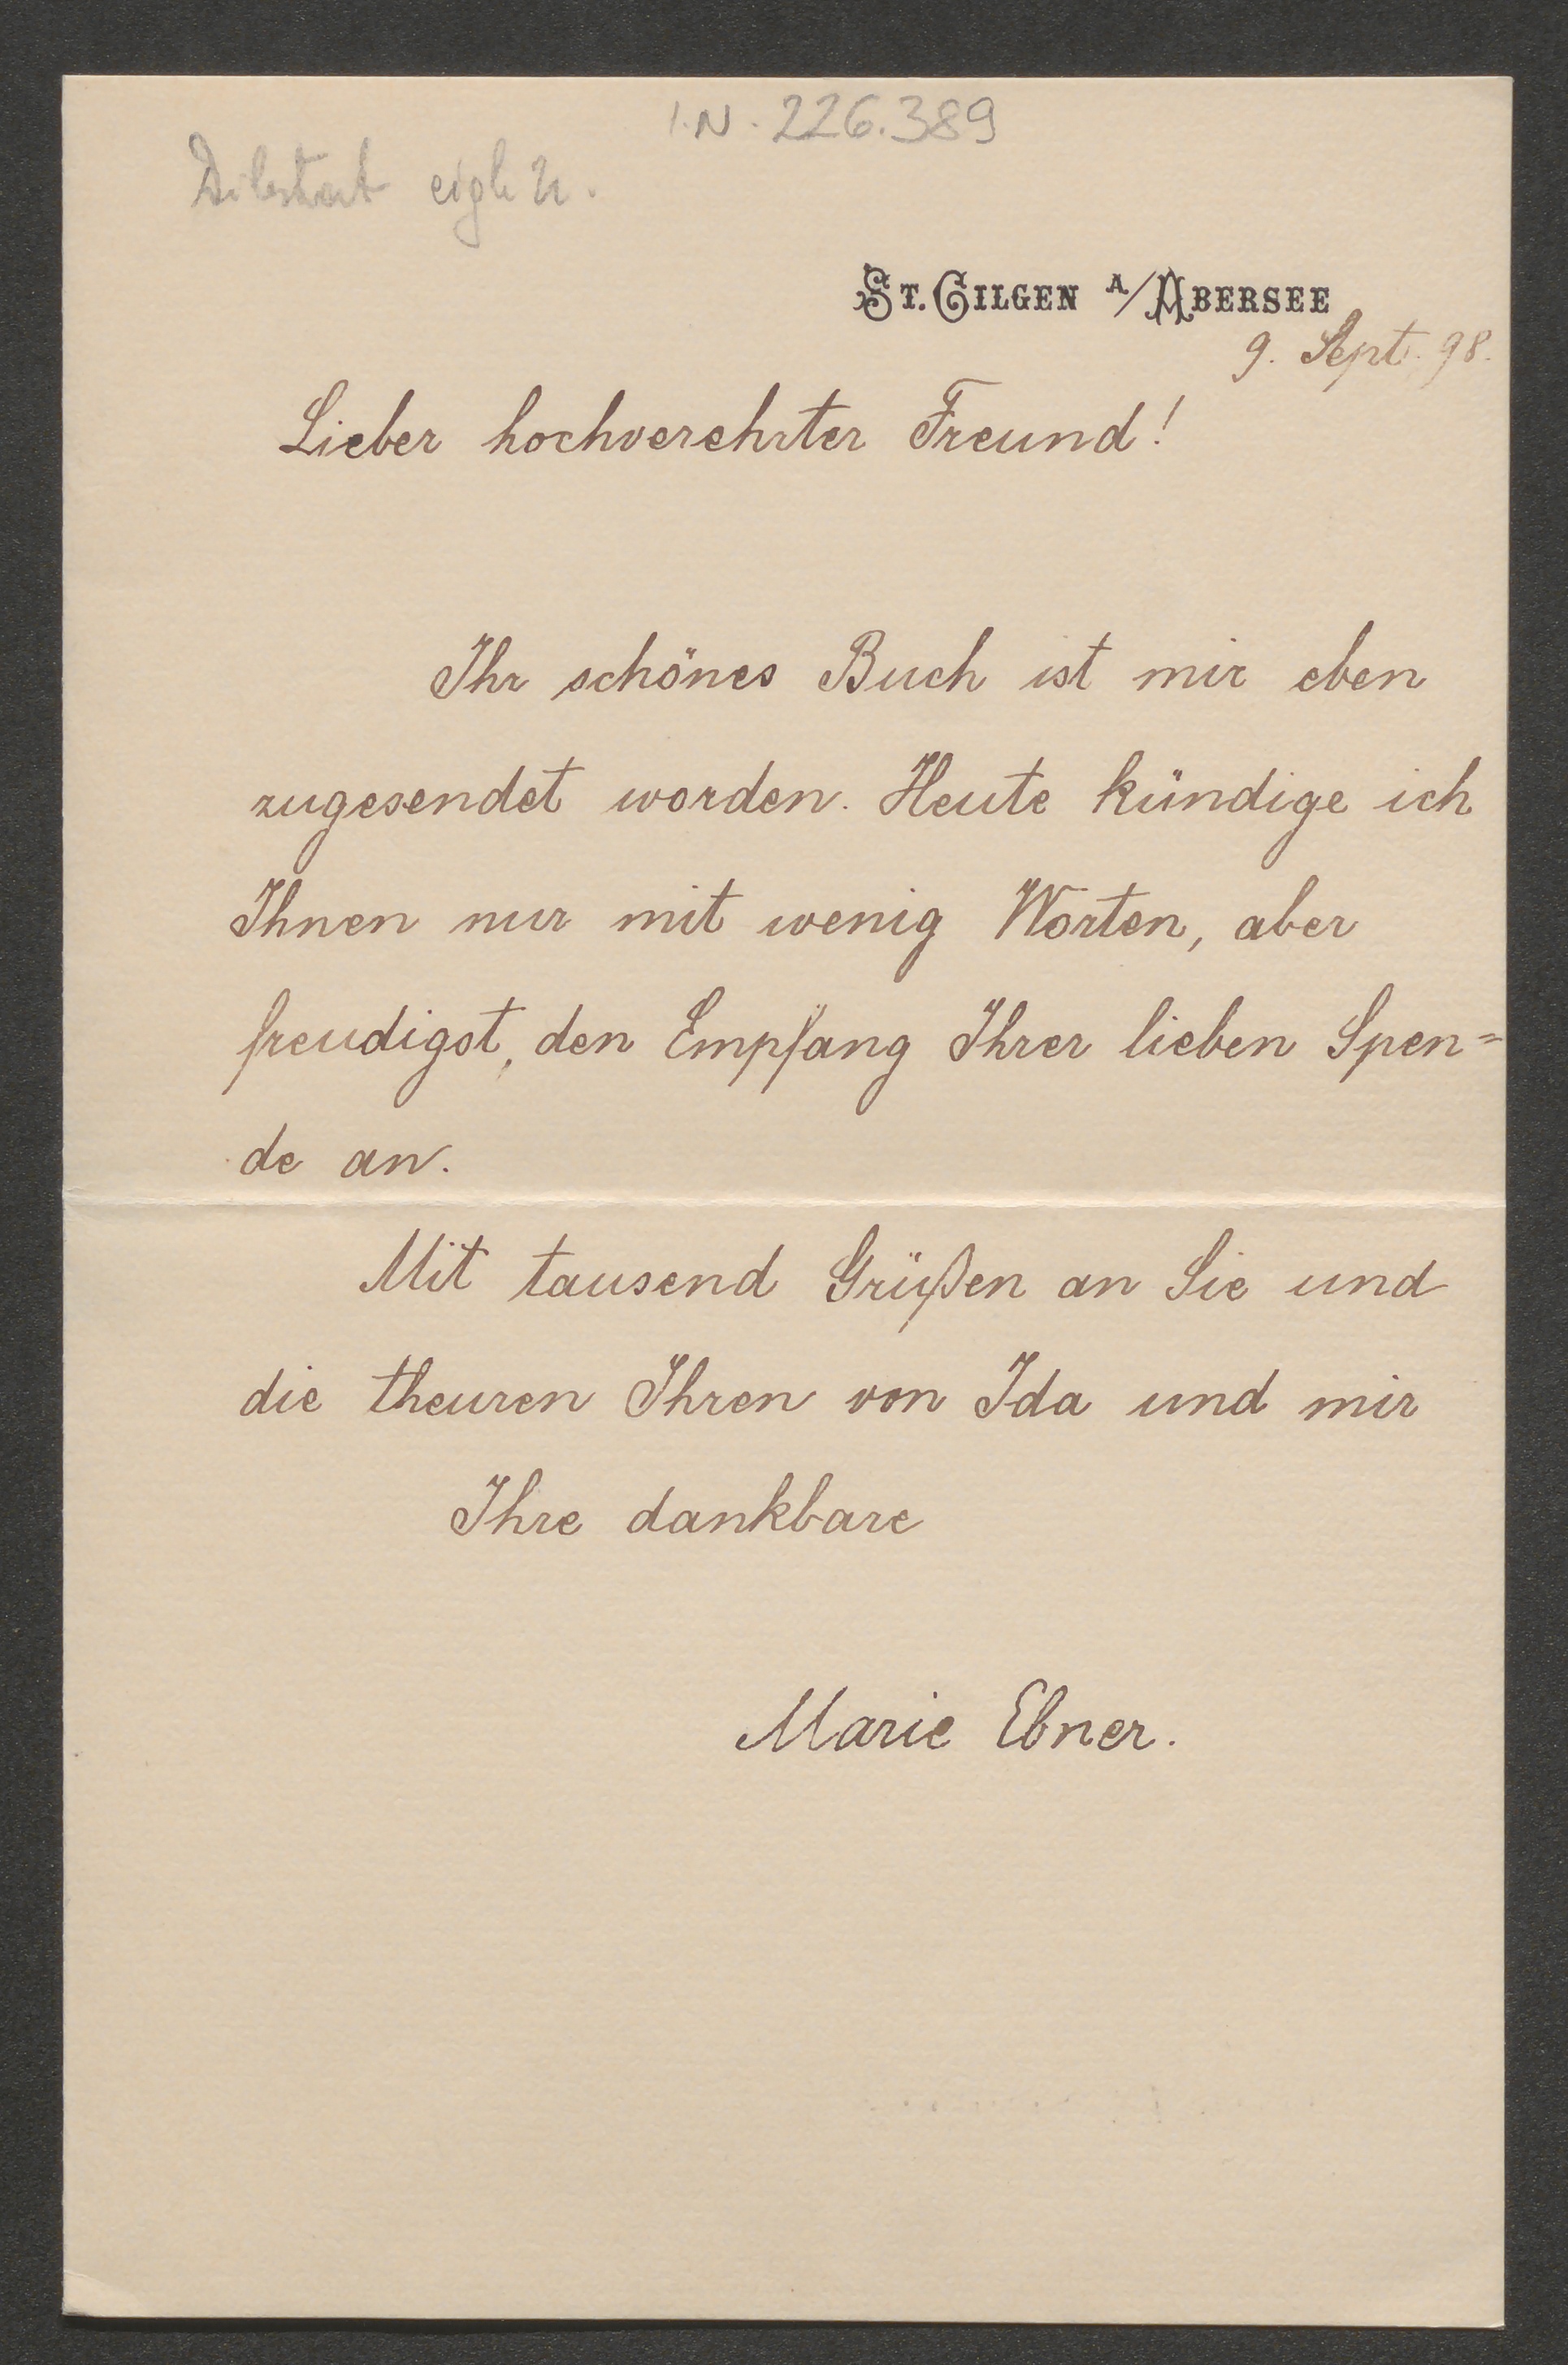 I.N. 226.389
Diktat eigh U.
St. Gilgen a/Abersee
9. Sept. 98.
Lieber hochverehrter Freund!
Ihr schönes Buch ist mir eben
zugesendet worden. Heute kündige ich
Ihnen nur mit wenig Worten, aber
freudigst, den Empfang Ihrer lieben Spen=
de an.
Mit tausend Grüßen an Sie und
die theuren Ihren von Ida und mir
Ihre dankbare
Marie Ebner.